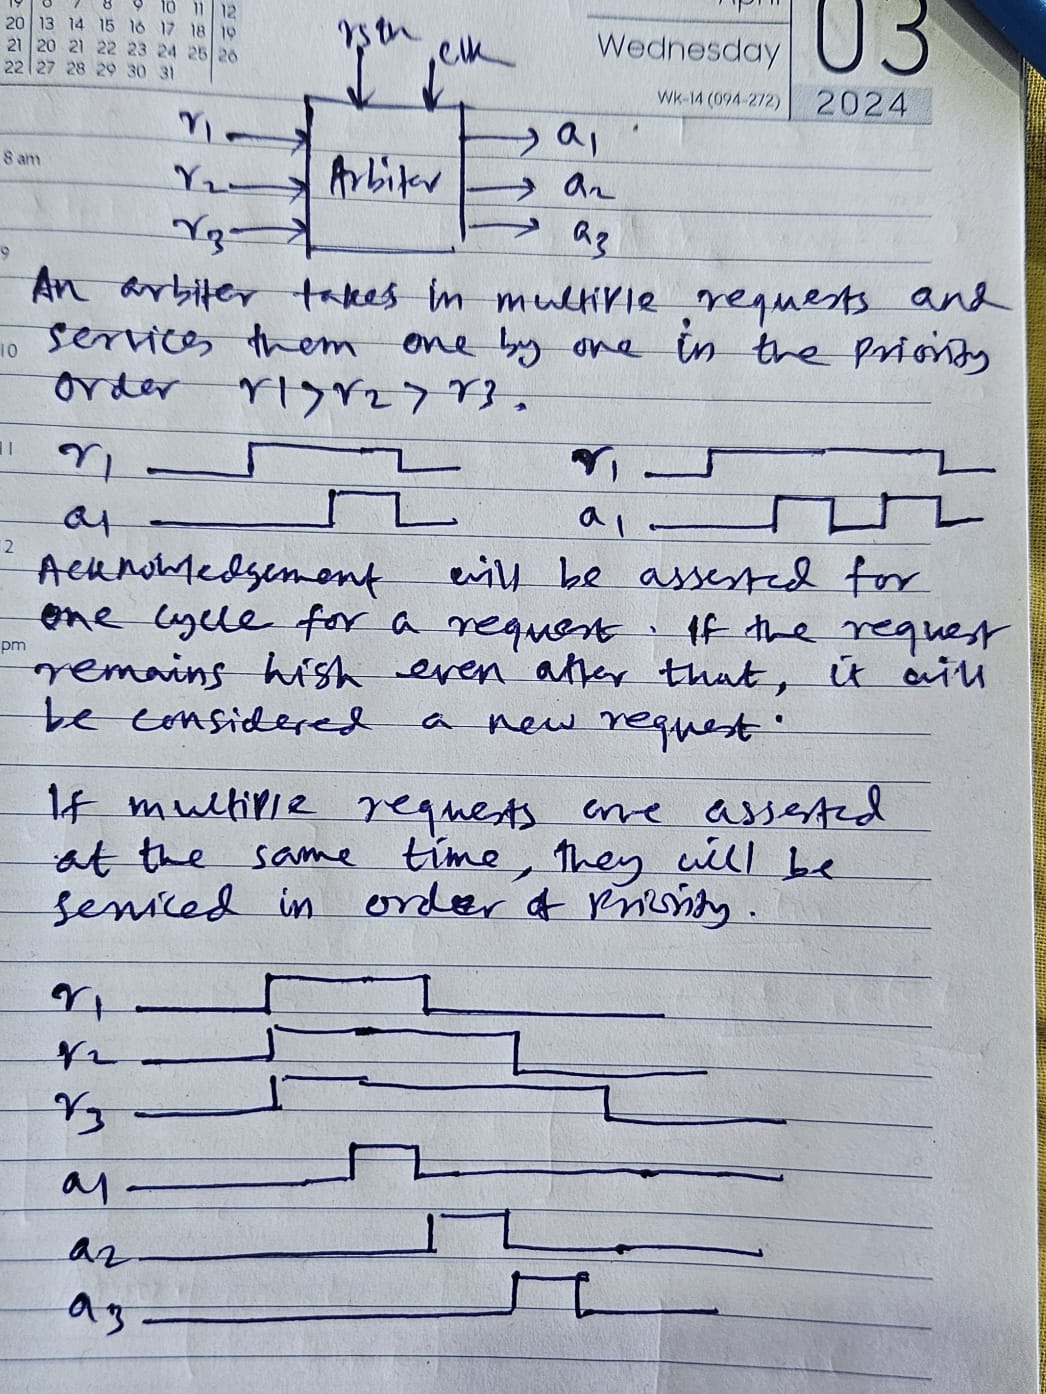 19 6 7 8 9 10 11 12
20 13 14 15 16 17 18 19
21 20 21 22 23 24 25 26
22 27 28 29 30 31
April
Wednesday
03
Wk-14 (094-272)
2024
rstn clk
r1 a1
8 am
r2 Arbiter a2
r3 a3
9
An arbiter takes in multiple requests and
10
services them one by one in the priority
order r1>r2>r3.
11
r1 r1
a1 a1
12
Acknowledgement will be asserted for
one cycle for a request. If the request
pm
remains high even after that, it will
be considered a new request.
If multiple requests are asserted
at the same time, they will be
serviced in order of priority.
r1
r2
r3
a1
a2
a3